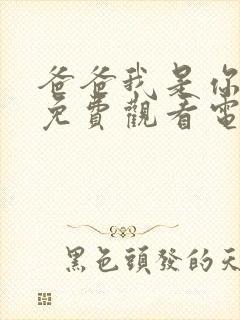 爸爸我是你
免費觀看電
黑色頭發的天